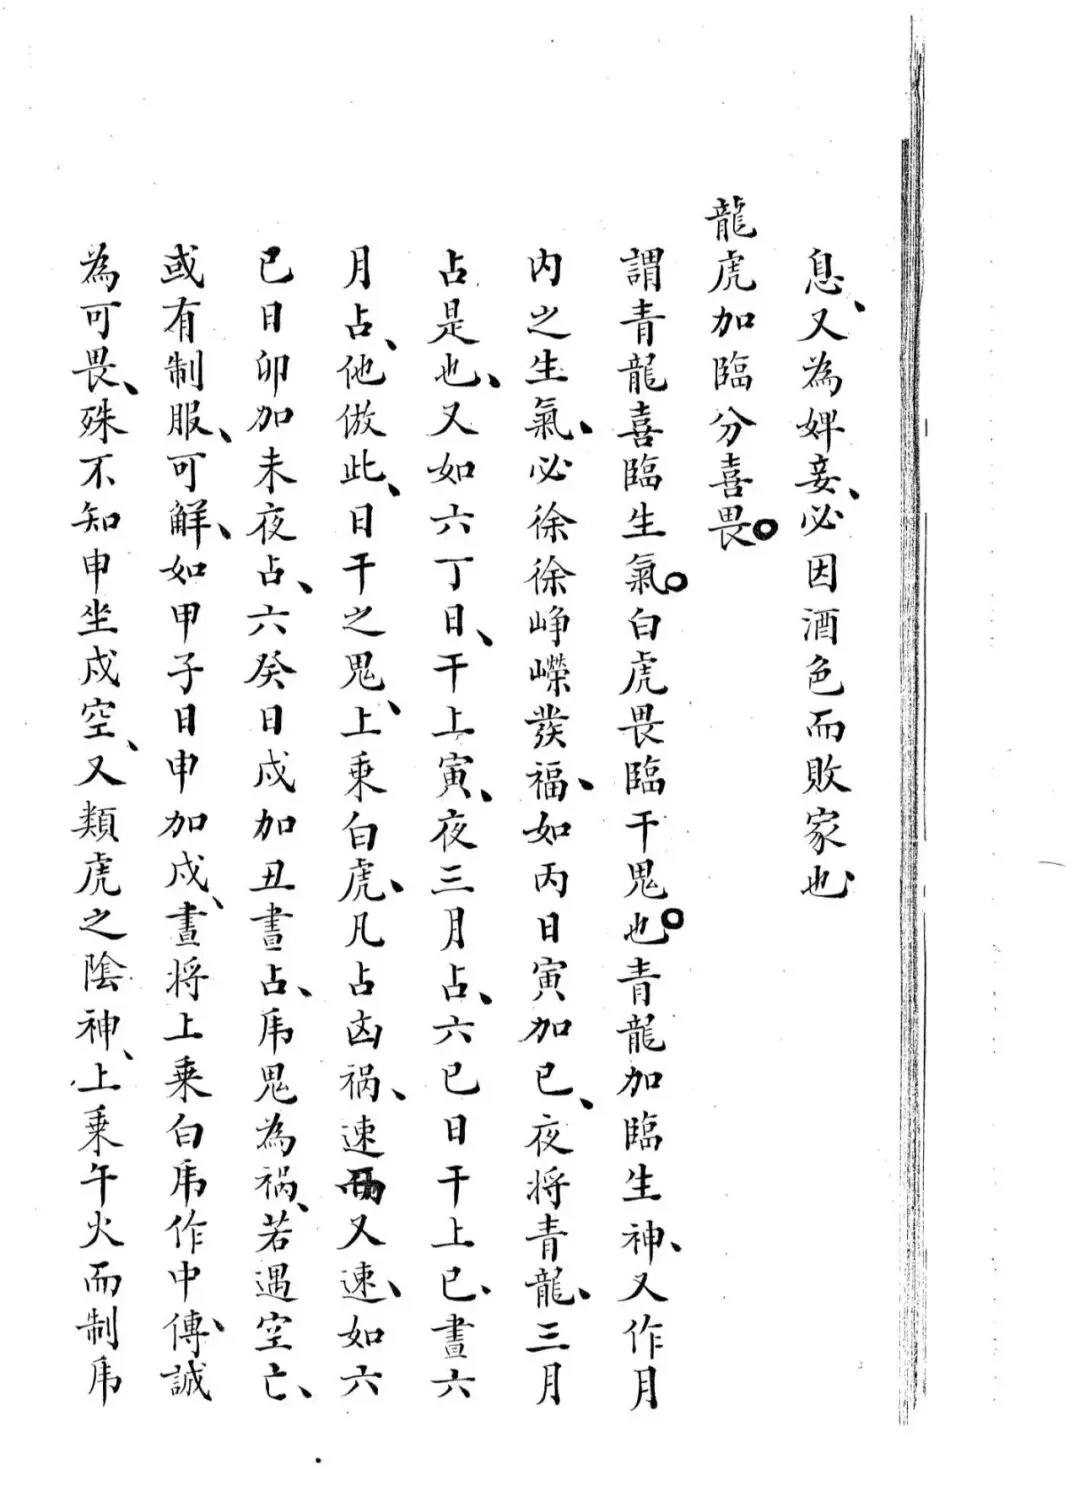 息、又為婢妾、必因酒色而敗家也、
龍虎加臨分喜畏。
謂青龍喜臨生氣。白虎畏臨干鬼也。青龍加臨生神、又作月
内之生氣、必徐徐崢嶸發福、如丙日寅加巳、夜將青龍、三月
占是也、又如六丁日、干上寅、夜三月占、六己日干上巳、晝六
月占、他倣此、日干之鬼、上乗白虎、凡占凶禍、速而又速、如六
己日卯加未夜占、六癸日戍加丑晝占、乕鬼為禍、若遇空亡、
或有制服、可解、如甲子日申加戍、晝將上乗白乕作中傳、誠
為可畏、殊不知申坐戍空、又類虎之陰神、上乗午火而制乕